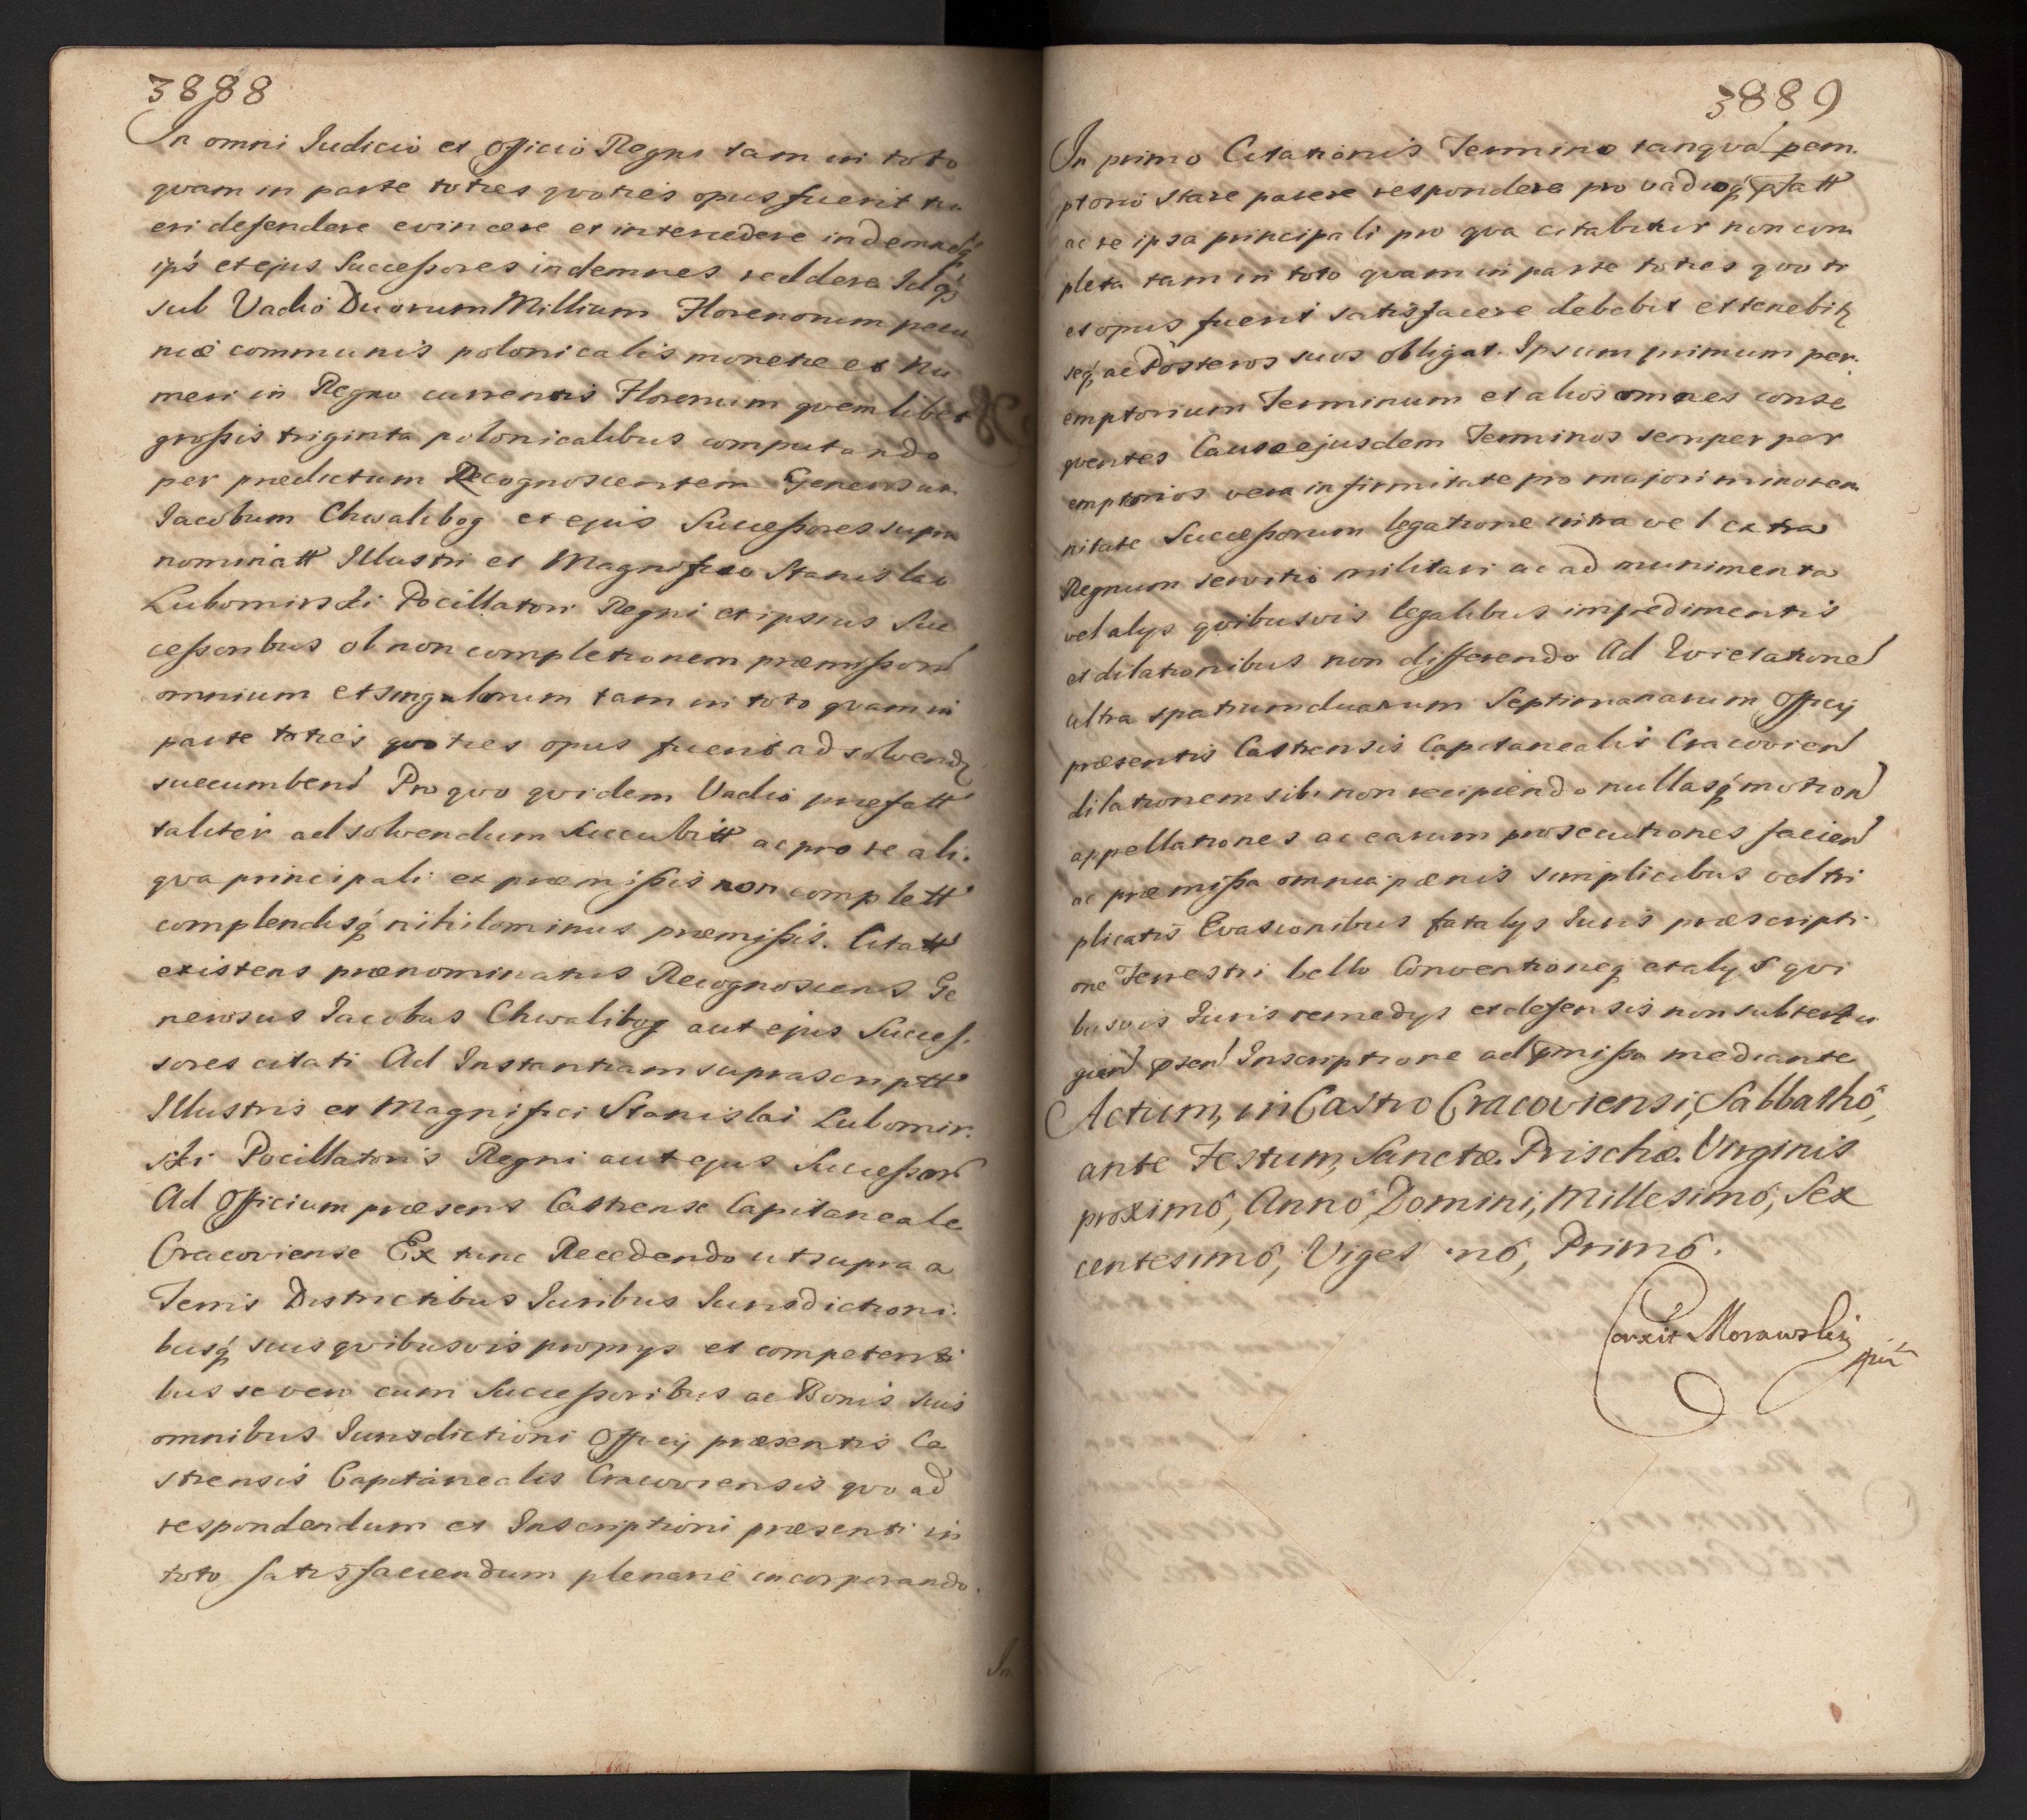 3888
In omni Iudicio et Officio Regni tam in toto
qvam in parte toties qvoties opus fuerit tu
eri defendere evincere et intercedere indemnesq́
ip̃s et ejus Successores indemnes reddere Idq́
sub Vadio Duorum Millium Florenorum pecu
niæ communis polonicalis monetæ et Nu
meri in Regno currentis Florenum qvemlibet
grossis triginta polonicalibus computando
per prædictum Recognoscentem Generosum
Iacobum Chwalibog et ejus Successores supra
nominatt Illustri et Magnifico Stanislao
Lubomirski Pocillatori Regni et ipsius Suc
cessoribus ob non completionem præmissorũ
omnium et singulorum tam in toto qvam in
parte toties qvoties opus fuerit ad solvendũ
succumbenđ Pro qvo qvidem Vadio præfatt
taliter ad solvendum succubitt ac pro re ali.
qva principali ex præmissis non complett
complendisq́ nihilominus præmissis. Citatt
existens prænominatus Recognoscens Ge
nerosus Iacobus Chwalibog aut ejus Succes.
sores citati Ad Instantiam suprascriptt
Illustris et Magnifici Stanislai Lubomir.
ski Pocillatoris Regni aut ejus Successorũ
Ad Officium præsens Castrense Capitaneale
Cracoviense Ex tunc Recedendo ut supra a
Terris Districtibus Iuribus Iurisdictioni.
busq́ suis qvibusvis proprys et competenti
bus se vero cum Successoribus ac Bonis suis
omnibus Iurisdictioni Officij præsentis Ca
strensis Capitanealis Cracoviensis qvo ad
respondendum et Inscriptioni præsenti in
toto satisfaciendum plenarie incorporando.
In
3889
In primo Citationis Termino tanqvã pem.
ptorio stare parere respondere pro vadioq́ p̃fatt
ac re ipsa principali pro qva citabitur non com
pleta tam in toto qvam in parte toties qvoti
es opus fuerit satisfacere debebit et tenebitʒ
seq́ ac Posteros suos obligat. Ipsum primum per.
emptorium Terminum et alios omnes conse
qventes Causæ ejusdem Terminos semper per
emptorios vera infirmitate pro majori minoren
nitate Successorum legatione intra vel extra
Regnum servitio militari ac ad munimenta
vel alys qvibusvis legalibus impedimentis
et dilationibus non differendo Ad Evictationeđ
ultra spatium duarum Septimanarum Officij
præsentis Castrensis Capitanealis Cracovienđ
dilationem sibi non recipiendo nullasq́ motionđ
appellationes ac earum prosecutiones facienđ
ac præmissa omnia pænis simplicibus vel tri
plicatis Evasionibus fatalys Iuris præscripti
one Terrestri bello Conventioneq́ et alys qvi
busvis Iuris remedys et defensis non subterfu
gienđ p̃senđ Inscriptione ad p̃missa mediante
Actum, in Castro Cracoviensi, Sabbathô,
ante Festum, Sanctæ. Prischæ. Virginis
proximô, Annô, Domini, Millesimô, Sex
centesimô, Viges mô, Primô.
Corexit Morawski
mpia